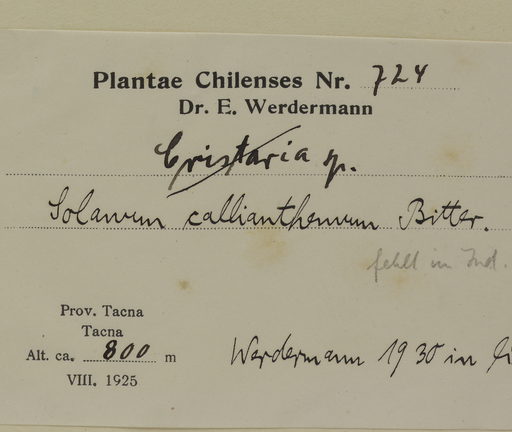 Plantae Chilenses Nr. 724
Dr. E. Werdermann
Cristaria sp.
Solanum callianthemum Bitter.
fehlt in Ind.
Prov. Tacna
Tacna
Alt. ca. 800 m
VIII. 1925
Werdermann 1930 in li